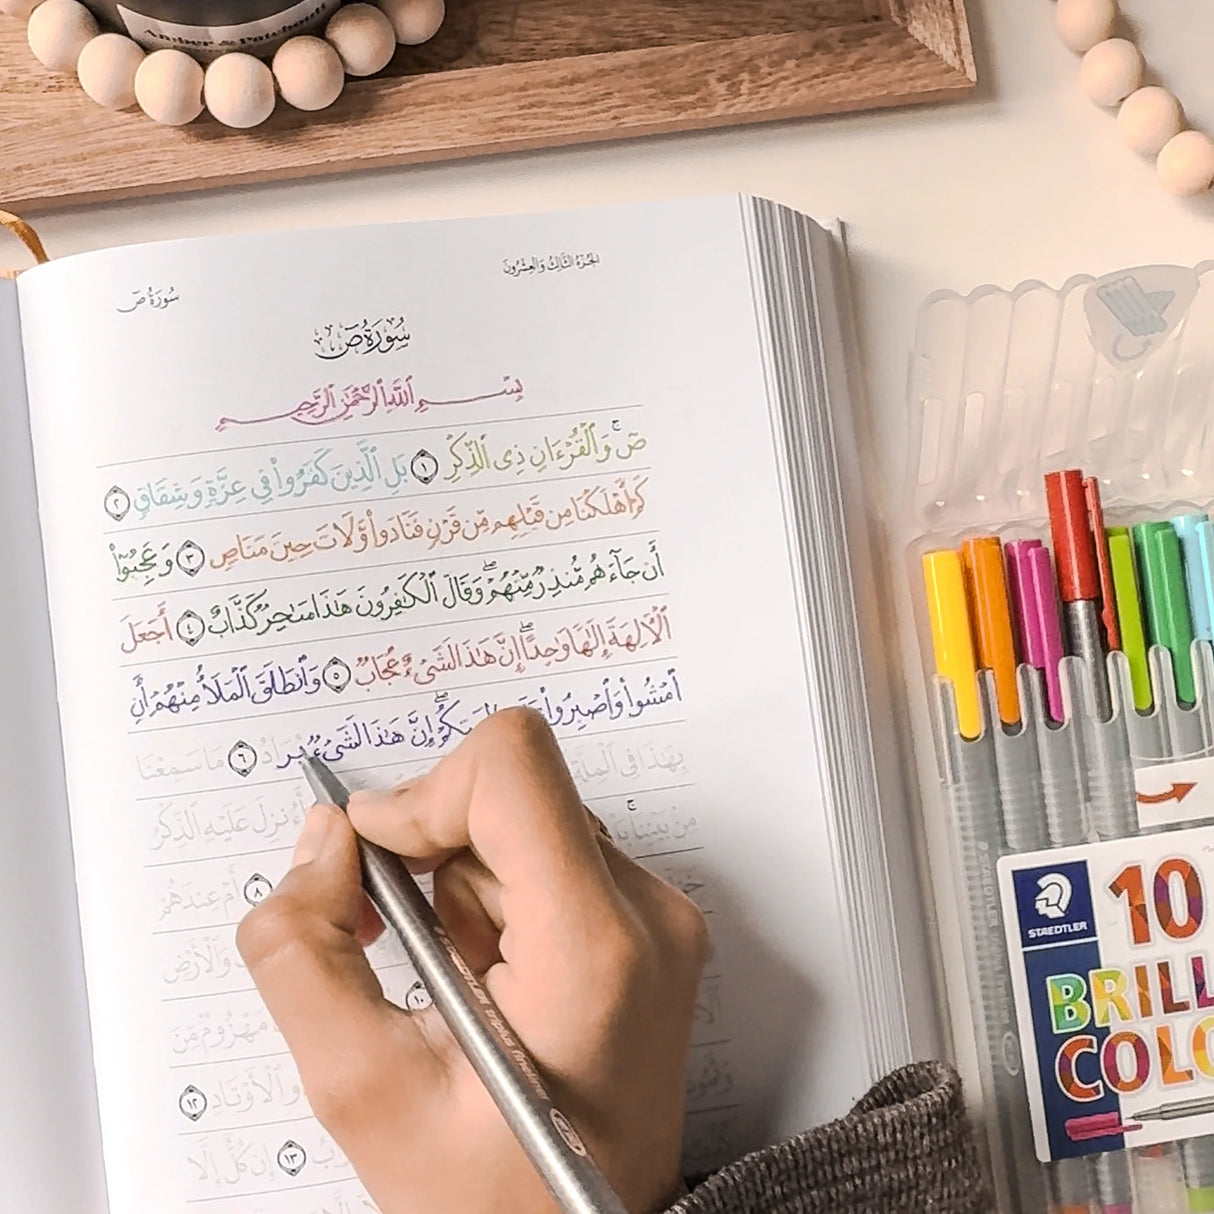 Amber & Patchouli
الجزء الثالث والعشرون
سورة ص
سُورَةُ صٓ
بِسْمِ ٱللَّهِ ٱلرَّحْمَٰنِ ٱلرَّحِيمِ
صٓۚ وَٱلْقُرْءَانِ ذِى ٱلذِّكْرِ ١ بَلِ ٱلَّذِينَ كَفَرُوا۟ فِى عِزَّةٍ وَشِقَاقٍ ٢
كَمْ أَهْلَكْنَا مِن قَبْلِهِم مِّن قَرْنٍ فَنَادَوا۟ وَّلَاتَ حِينَ مَنَاصٍ ٣ وَعَجِبُوٓا۟
أَن جَآءَهُم مُّنذِرٌ مِّنْهُمْۖ وَقَالَ ٱلْكَٰفِرُونَ هَٰذَا سَٰحِرٌ كَذَّابٌ ٤ أَجَعَلَ
ٱلْأَلِهَةَ إِلَٰهًا وَٰحِدًاۖ إِنَّ هَٰذَا لَشَىْءٌ عُجَابٌ ٥ وَٱنطَلَقَ ٱلْمَلَأُ مِنْهُمْ أَنِ
ٱمْشُوا۟ وَٱصْبِرُوا۟ إِنَّ هَٰذَا لَشَىْءٌ
٦ مَا سَمِعْنَا
بِهَٰذَا فِى ٱلْمِلَّةِ
أَءُنزِلَ عَلَيْهِ ٱلذِّكْرُ
مِنۢ بَيْنِنَاۚ
٨ أَمْ عِندَهُمْ
وَٱلْأَرْضِ
١٠
مَهْزُومٌ مِّنَ
ٱلْأَوْتَادِ ١٢
١٣ إِن كُلٌّ إِلَّا
STAEDTLER
10
BRILL
COLO
STAEDTLER triplus fineliner